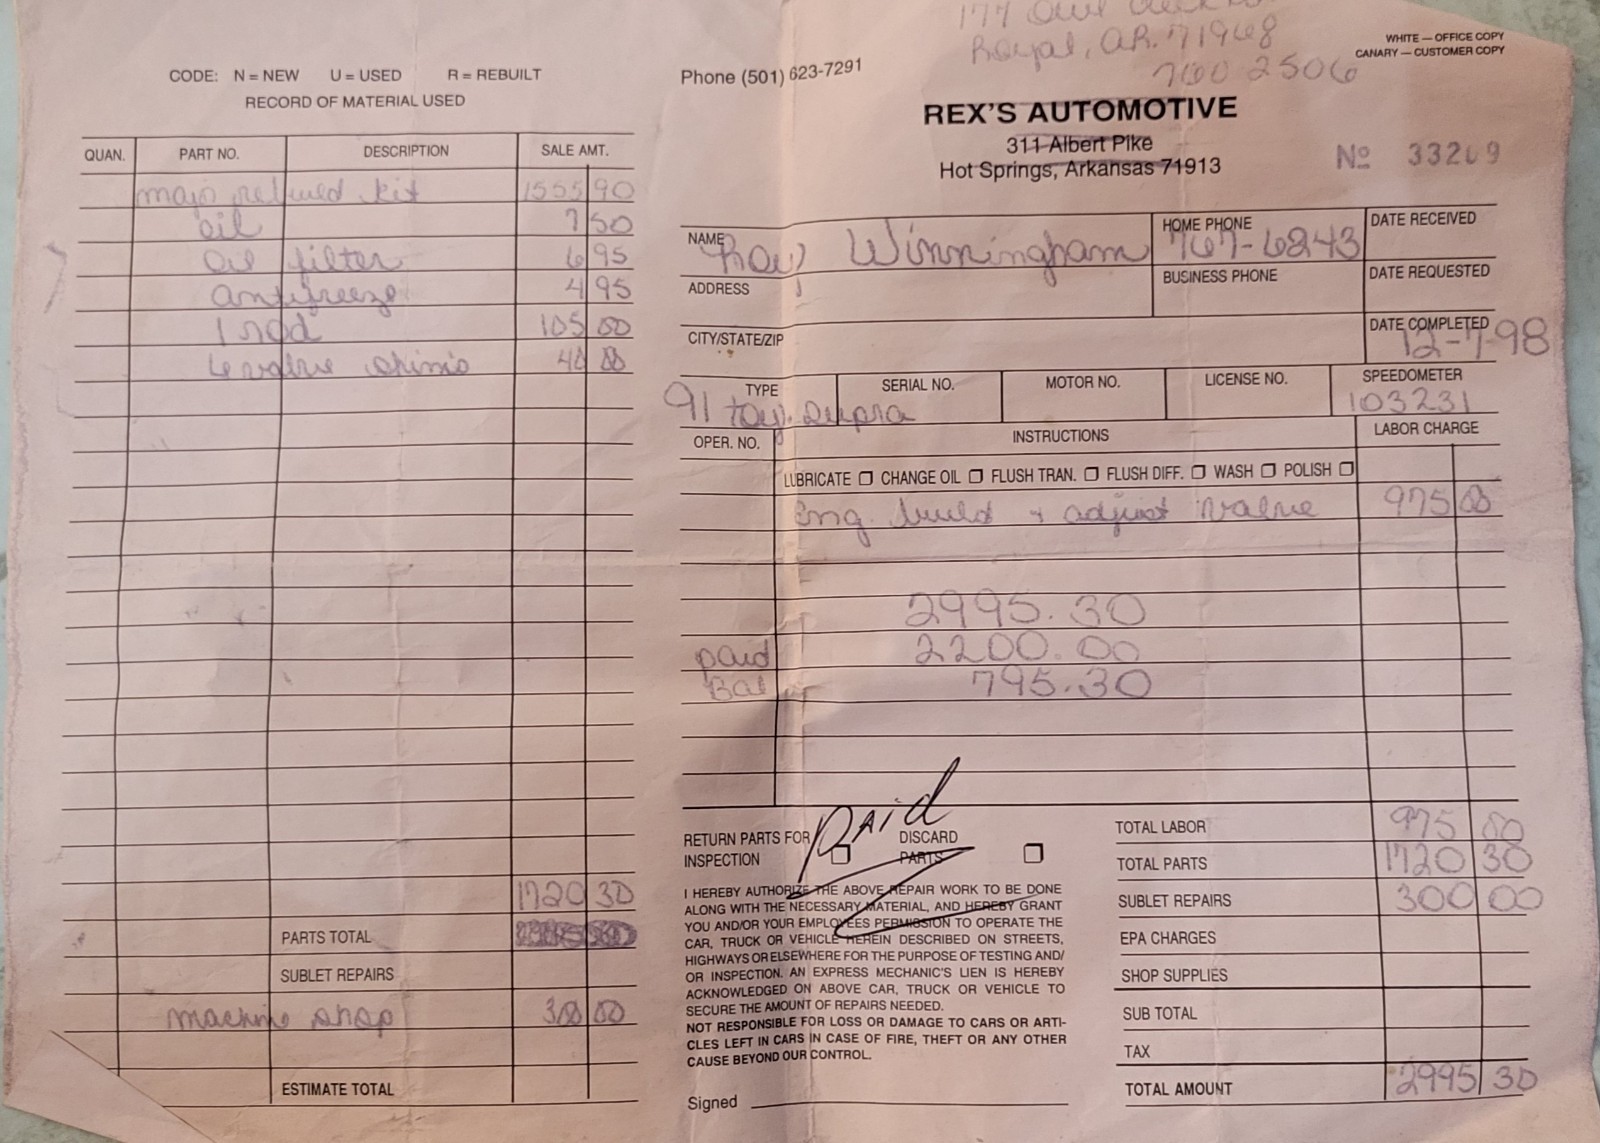 CODE: N = NEW U = USED R = REBUILT
RECORD OF MATERIAL USED
QUAN. PART NO. DESCRIPTION SALE AMT.
major rebuild kit 1555 90
oil 7 50
oil filter 6 95
antifreeze 4 95
1 rod 105 00
valve shims 40 00
1720 30
PARTS TOTAL
SUBLET REPAIRS
machine shop 300 00
ESTIMATE TOTAL
177 Owl
Royal, AR. 71968
760 2506
WHITE — OFFICE COPY
CANARY — CUSTOMER COPY
Phone (501) 623-7291
REX'S AUTOMOTIVE
311 Albert Pike
Hot Springs, Arkansas 71913
No 33209
NAME Ray Winningham HOME PHONE 767-6243 DATE RECEIVED
ADDRESS BUSINESS PHONE DATE REQUESTED
CITY/STATE/ZIP DATE COMPLETED 12-7-98
TYPE SERIAL NO. MOTOR NO. LICENSE NO. SPEEDOMETER
91 toy. supra 103231
OPER. NO. INSTRUCTIONS LABOR CHARGE
LUBRICATE CHANGE OIL FLUSH TRAN. FLUSH DIFF. WASH POLISH
Eng. build + adjust valve 975 00
2995.30
paid 2200.00
Bal 795.30
Paid
RETURN PARTS FOR INSPECTION DISCARD PARTS
I HEREBY AUTHORIZE THE ABOVE REPAIR WORK TO BE DONE
ALONG WITH THE NECESSARY MATERIAL, AND HEREBY GRANT
YOU AND/OR YOUR EMPLOYEES PERMISSION TO OPERATE THE
CAR, TRUCK OR VEHICLE HEREIN DESCRIBED ON STREETS,
HIGHWAYS OR ELSEWHERE FOR THE PURPOSE OF TESTING AND/
OR INSPECTION. AN EXPRESS MECHANIC'S LIEN IS HEREBY
ACKNOWLEDGED ON ABOVE CAR, TRUCK OR VEHICLE TO
SECURE THE AMOUNT OF REPAIRS NEEDED.
NOT RESPONSIBLE FOR LOSS OR DAMAGE TO CARS OR ARTI-
CLES LEFT IN CARS IN CASE OF FIRE, THEFT OR ANY OTHER
CAUSE BEYOND OUR CONTROL.
Signed
TOTAL LABOR 975 00
TOTAL PARTS 1720 30
SUBLET REPAIRS 300 00
EPA CHARGES
SHOP SUPPLIES
SUB TOTAL
TAX
TOTAL AMOUNT 2995 30